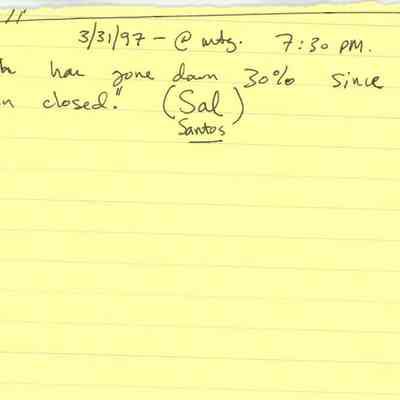 3/31/97 - @ mtg. 7:30 PM.
has gone down 30% since
closed." (Sal)
Santos